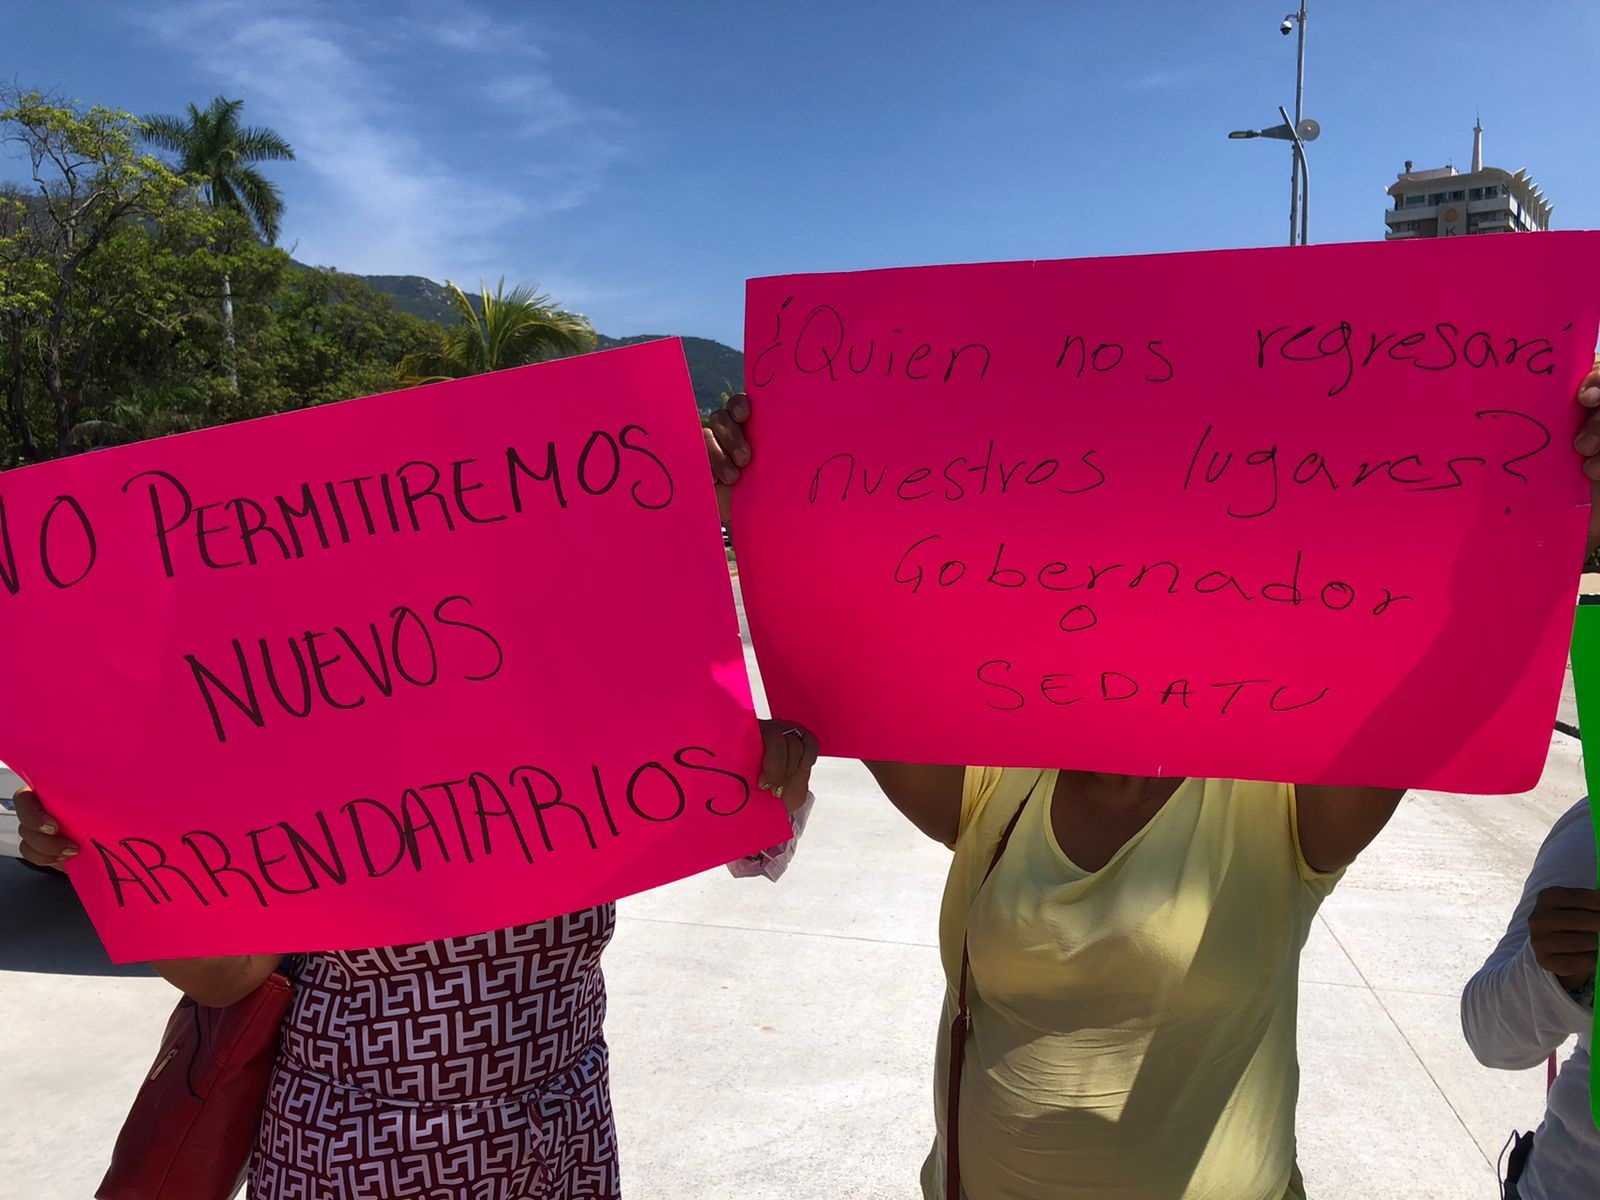 NO PERMITIREMOS
NUEVOS
ARRENDATARIOS
¿Quien nos regresará
nuestros lugares?
Gobernador
o
SEDATU
K